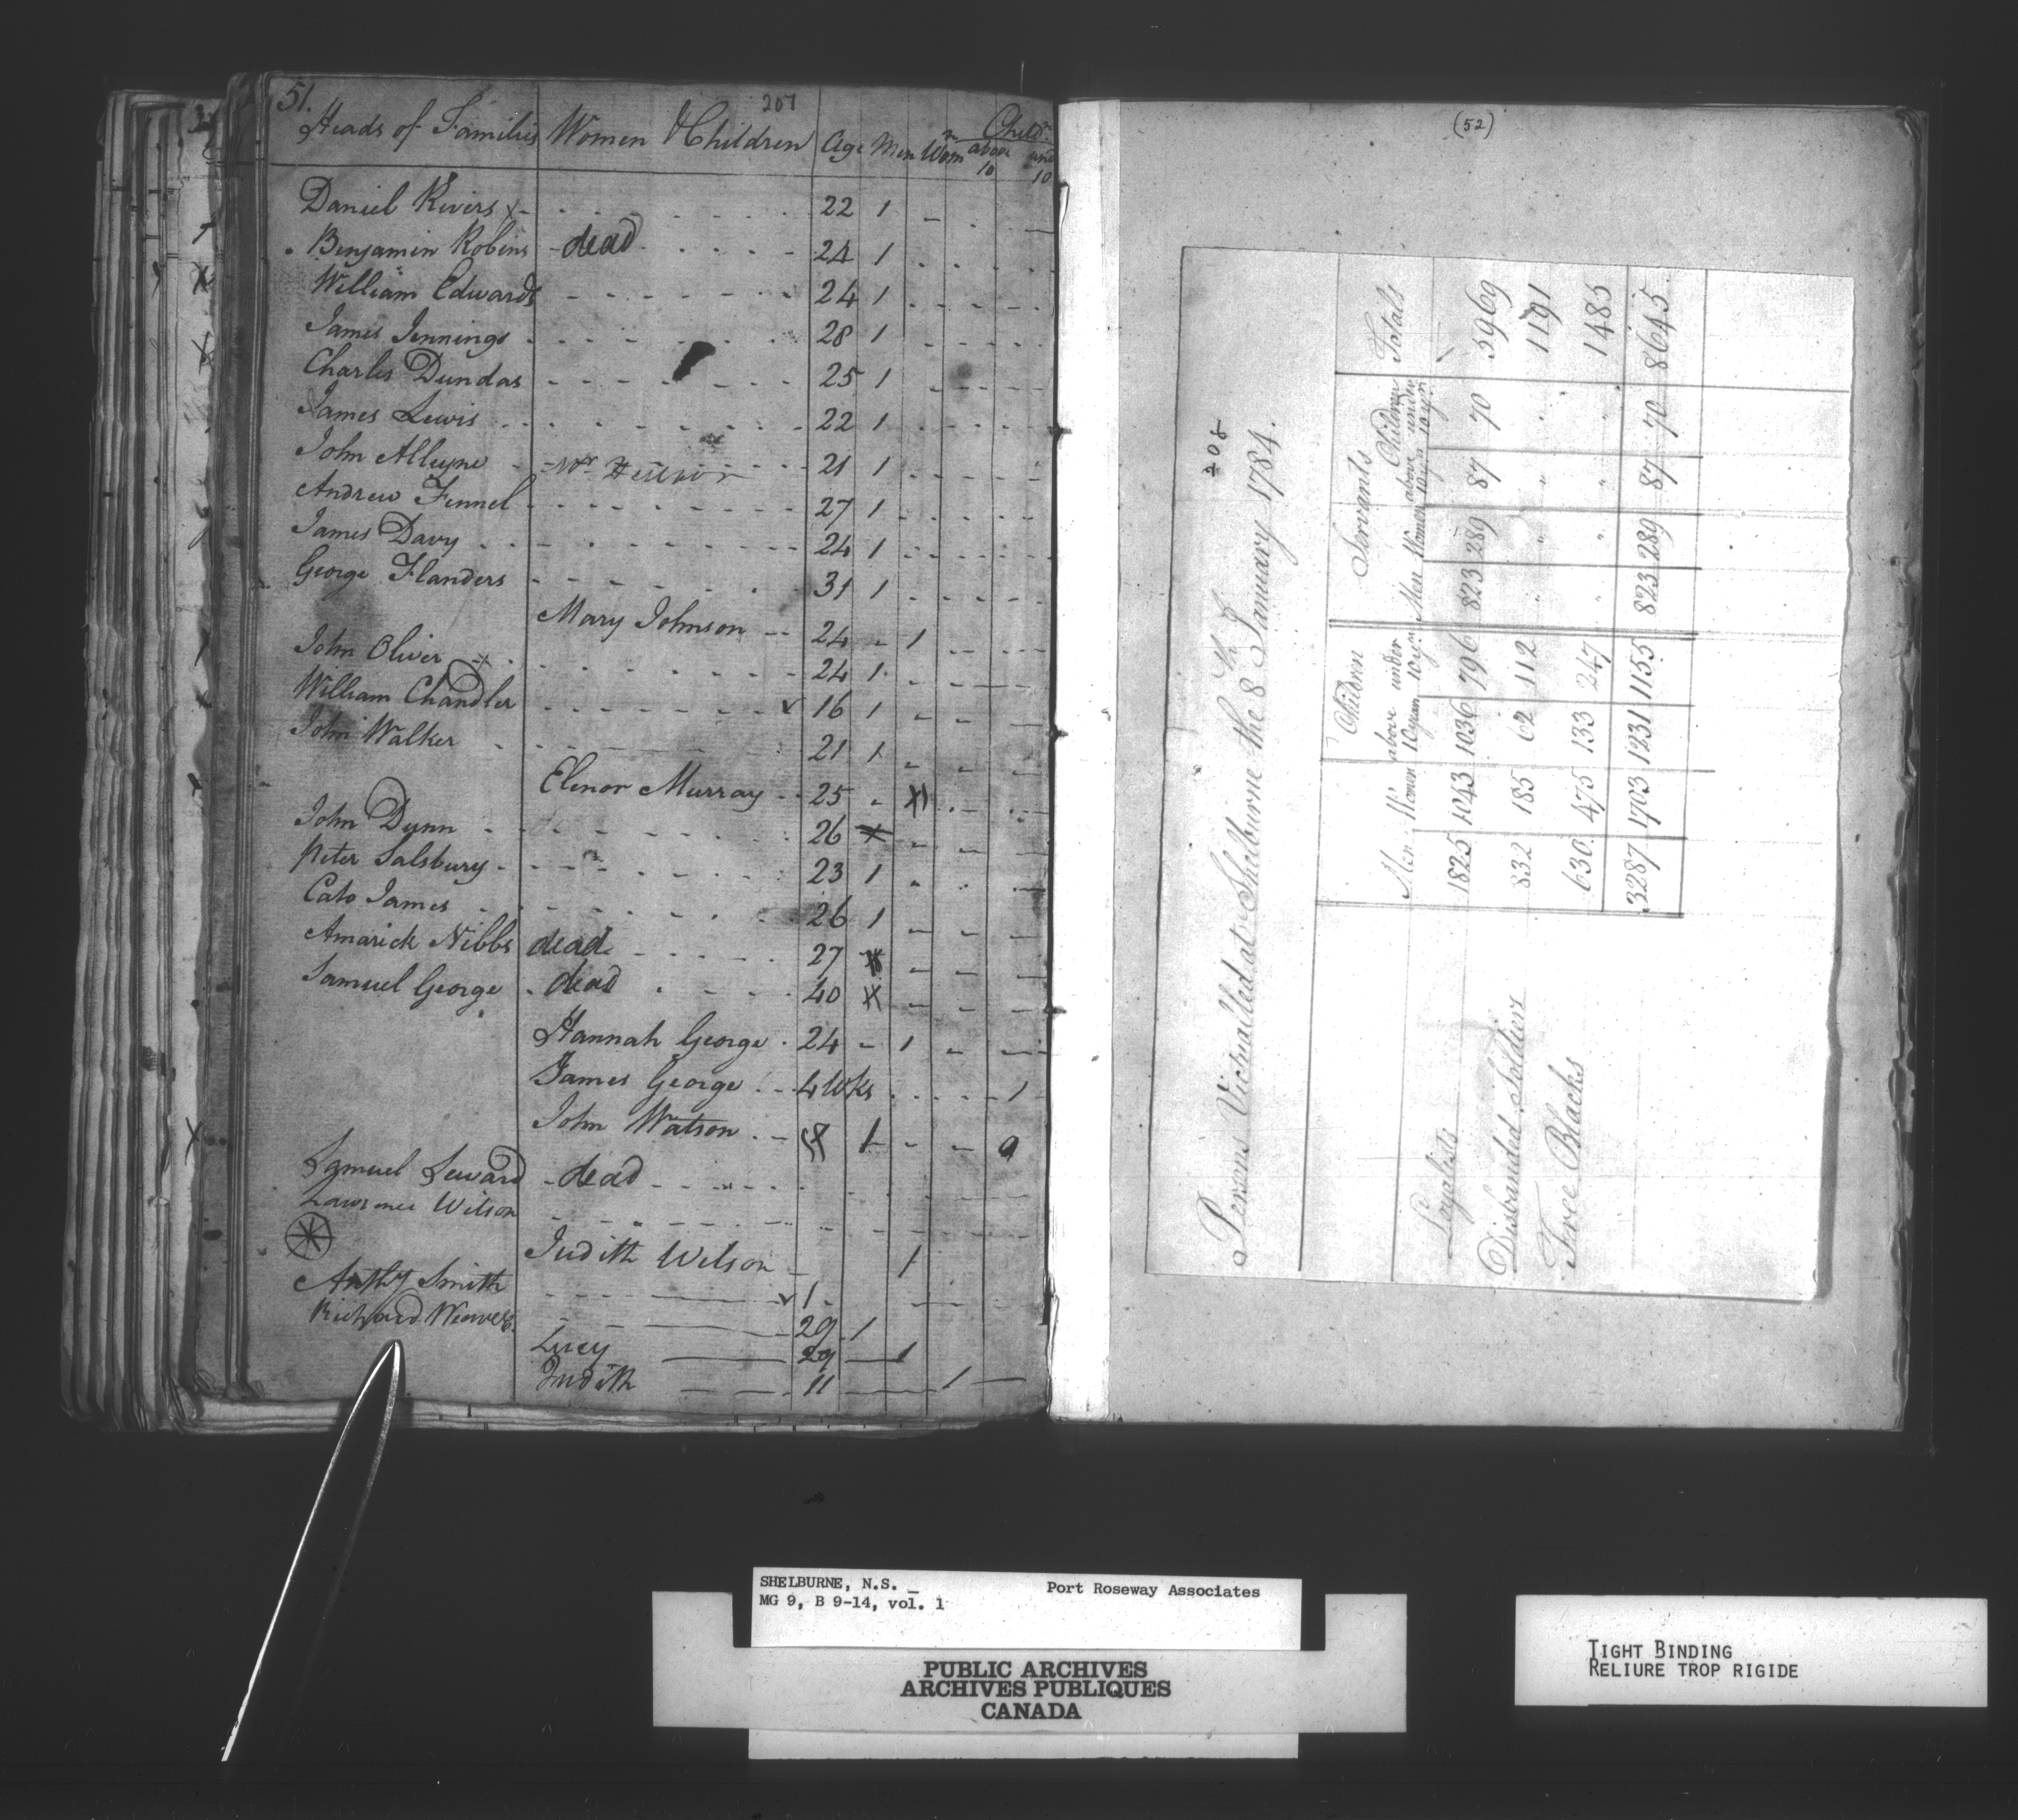 51.
207
Heads of Families Women & Children Age Men Wom^n Child^n above 10 und 10
Daniel Rivers x 22 1
Benjamin Robins dead 24 1
William Edwards 24 1
James Jennings 28 1
Charles Dundas 25 1
James Lewis 22 1
John Alleyne 21 1
Andrew Fennel 27 1
James Davy 24 1
George Flanders 31 1
Mary Johnson 24 1
John Oliver x 24 1
William Chandler 16 1
John Walker 21 1
Elenor Murray 25
John Dunn 26
Peter Salsbury 23 1
Cato James 26 1
Amarick Nibbs dead 27
Samuel George dead 40
Hannah George 24 1
James George 4 Wks 1
John Watson 1
Samuel Seward dead
Lawrence Wilson
Judith Wilson 1
Anthy Smith 1
Richard Weaver 29 1
Lucy 29 1
Judith 11 1
(52)
208
Persons Victualled at Shelburne the 8^th January 1784.
Children Servants
Men Women above 10 years under 10 yrs Men Women Children above 10 yrs under 10 yrs Totals
Loyalists 1825 1043 1036 796 823 289 87 70 5969
Disbanded Soldiers 832 185 62 112 " " " " 1191
Free Blacks 630 475 133 247 " " " " 1485
3287 1703 1231 1155 823 289 87 70 8645
SHELBURNE, N.S. _ Port Roseway Associates
MG 9, B 9-14, vol. 1
PUBLIC ARCHIVES
ARCHIVES PUBLIQUES
CANADA
TIGHT BINDING
RELIURE TROP RIGIDE